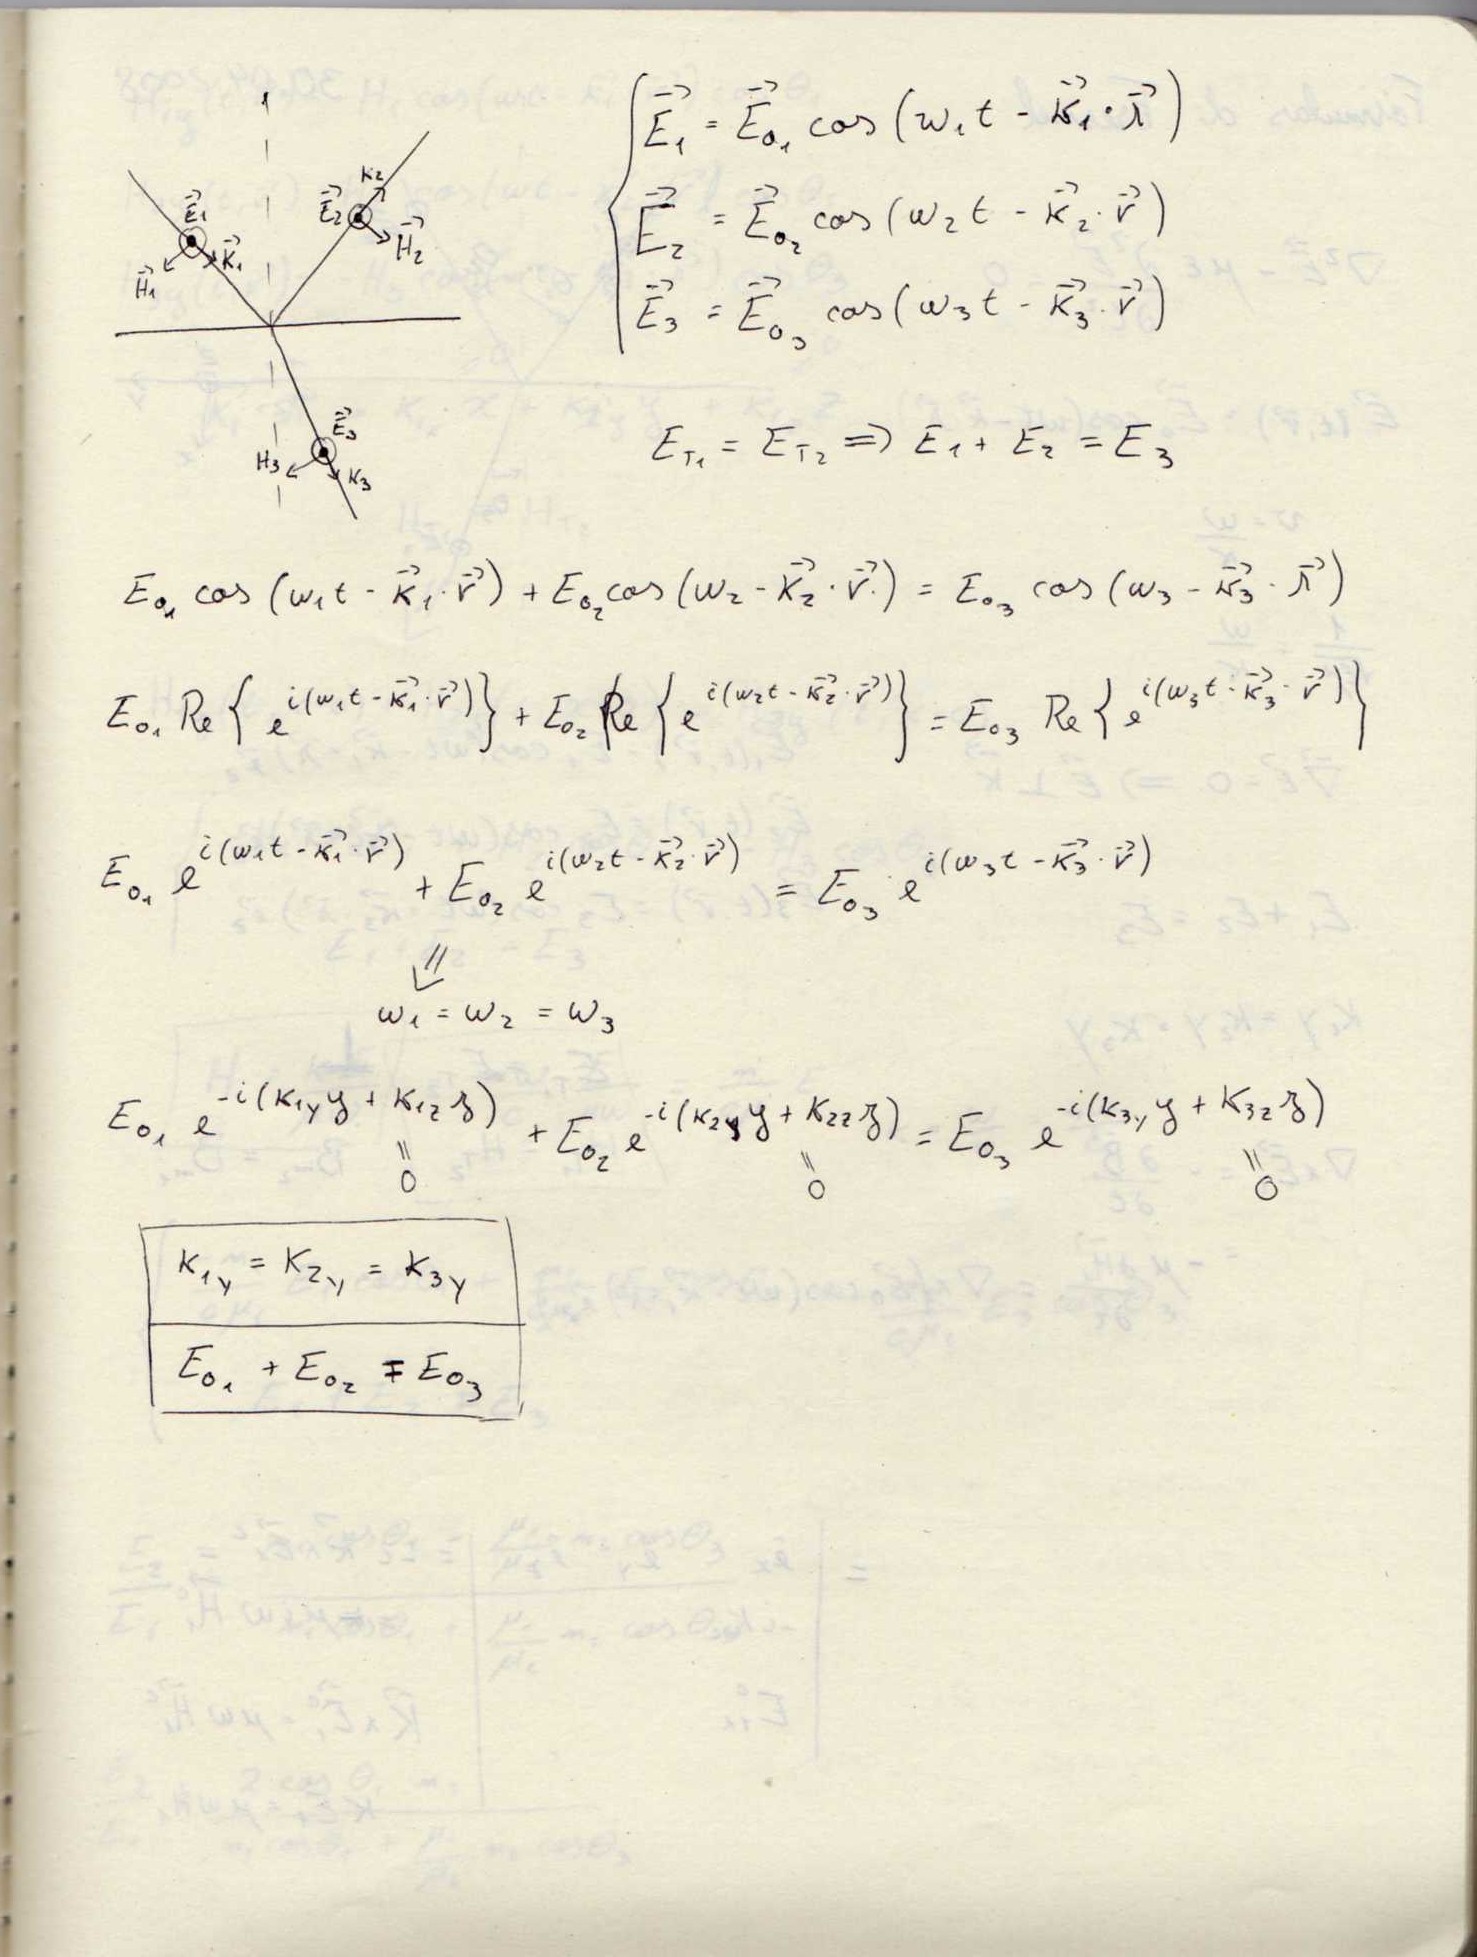 E⃗₁ = E⃗₀₁ cos (ω₁t - k⃗₁ · r⃗)
E⃗₂ = E⃗₀₂ cos (ω₂t - k⃗₂ · r⃗)
E⃗₃ = E⃗₀₃ cos (ω₃t - k⃗₃ · r⃗)
k₂
E⃗₁
E⃗₂
H⃗₂
k⃗₁
H⃗₁
E⃗₃
H₃
k₃
E_T₁ = E_T₂ ⇒ E₁ + E₂ = E₃
E₀₁ cos (ω₁t - k⃗₁ · r⃗) + E₀₂ cos (ω₂ - k⃗₂ · r⃗) = E₀₃ cos (ω₃ - k⃗₃ · r⃗)
E₀₁ Re { e^i(ω₁t - k⃗₁ · r⃗) } + E₀₂ Re { e^i(ω₂t - k⃗₂ · r⃗) } = E₀₃ Re { e^i(ω₃t - k⃗₃ · r⃗) }
E₀₁ e^i(ω₁t - k⃗₁ · r⃗) + E₀₂ e^i(ω₂t - k⃗₂ · r⃗) = E₀₃ e^i(ω₃t - k⃗₃ · r⃗)
⇓
ω₁ = ω₂ = ω₃
E₀₁ e^-i(k₁y y + k₁z z) + E₀₂ e^-i(k₂y y + k₂z z) = E₀₃ e^-i(k₃y y + k₃z z)
|| || ||
0 0 0
k₁y = k₂y = k₃y
E₀₁ + E₀₂ = E₀₃